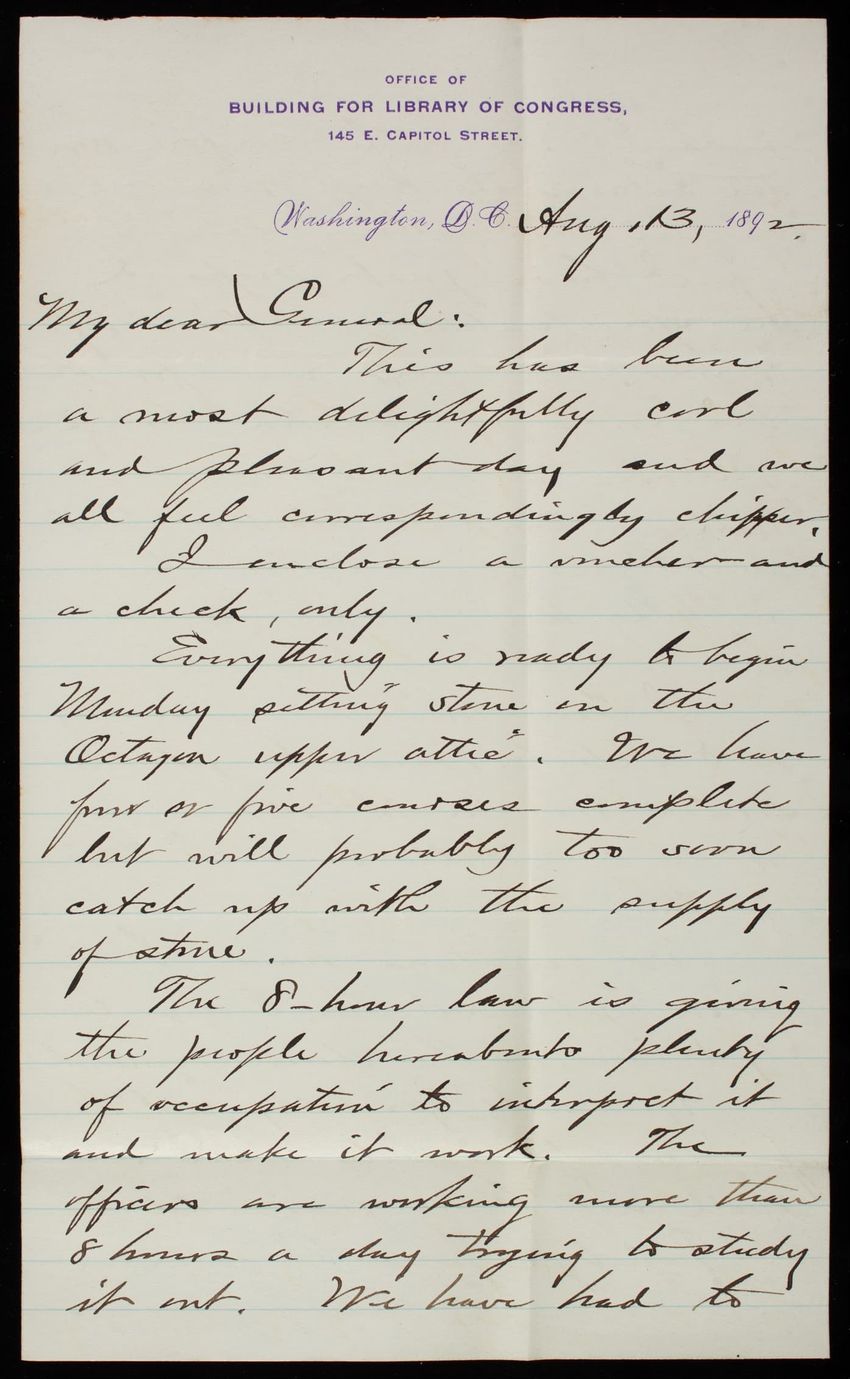 OFFICE OF
BUILDING FOR LIBRARY OF CONGRESS,
145 E. CAPITOL STREET.
Washington, D.C. Aug. 13, 1892.
My dear General:
This has been
a most delightfully cool
and pleasant day and we
all feel correspondingly chipper.
I enclose a voucher and
a check, only.
Everything is ready to begin
Monday setting stone on the
Octagon upper attic. We have
four or five courses complete
but will probably too soon
catch up with the supply
of stone.
The 8-hour law is giving
the people hereabouts plenty
of occupation to interpret it
and make it work. The
officers are working more than
8 hours a day trying to study
it out. We have had to